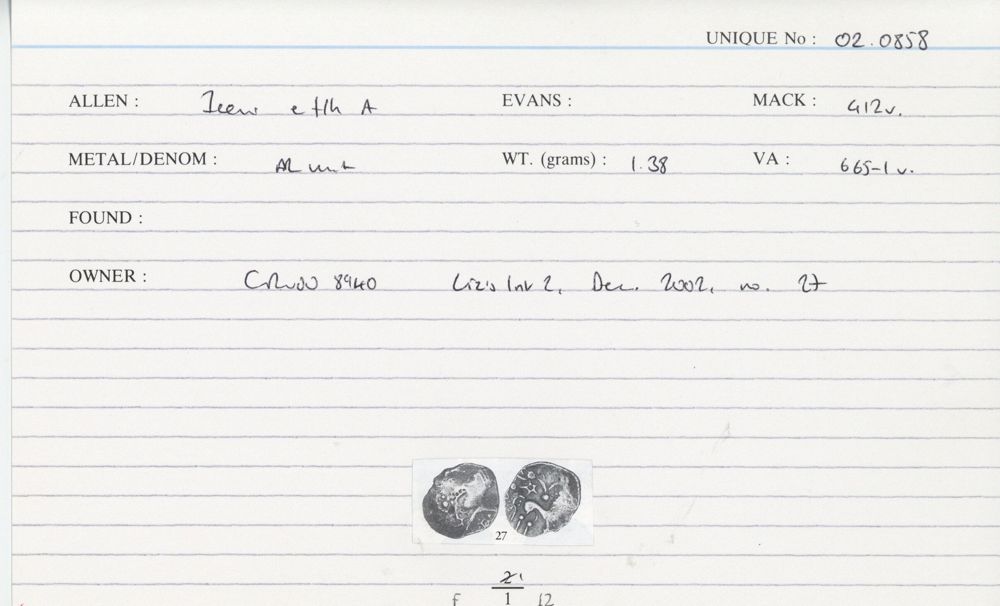 UNIQUE No : 02.0858
ALLEN : Iceni A EVANS : MACK : 412v.
METAL/DENOM : AR unit WT. (grams) : 1.38 VA : 665-1 v.
FOUND :
OWNER : CRUDD 8940 Liz's Inv 2, Dec. 2002, no. 27
27
f 1 12